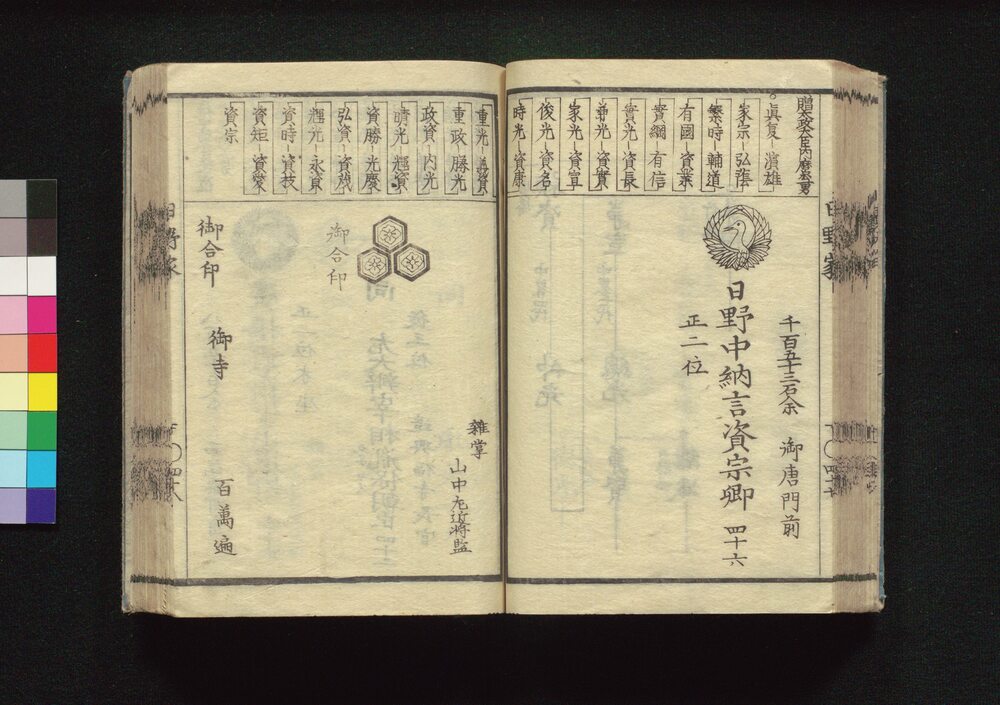 贈太政大臣内麿公男
真夏 濱雄
家宗 弘蔭
繁時 輔道
有國 資業
實綱 有信
實光 資長
兼光 資實
家光 資宣
俊光 資名
時光 資康
日野家
千百五十三石余 御唐門前
日野中納言資宗卿 四十六
正二位
四十七
重光 義資
重政 勝光
政資 内光
晴光 輝資
資勝 光慶
弘資 資茂
輝光 永資
資時 資枝
資矩 資愛
資宗
雑掌
山中左近将監
御合印
御合印
御寺 百萬遍
日野家
四十八